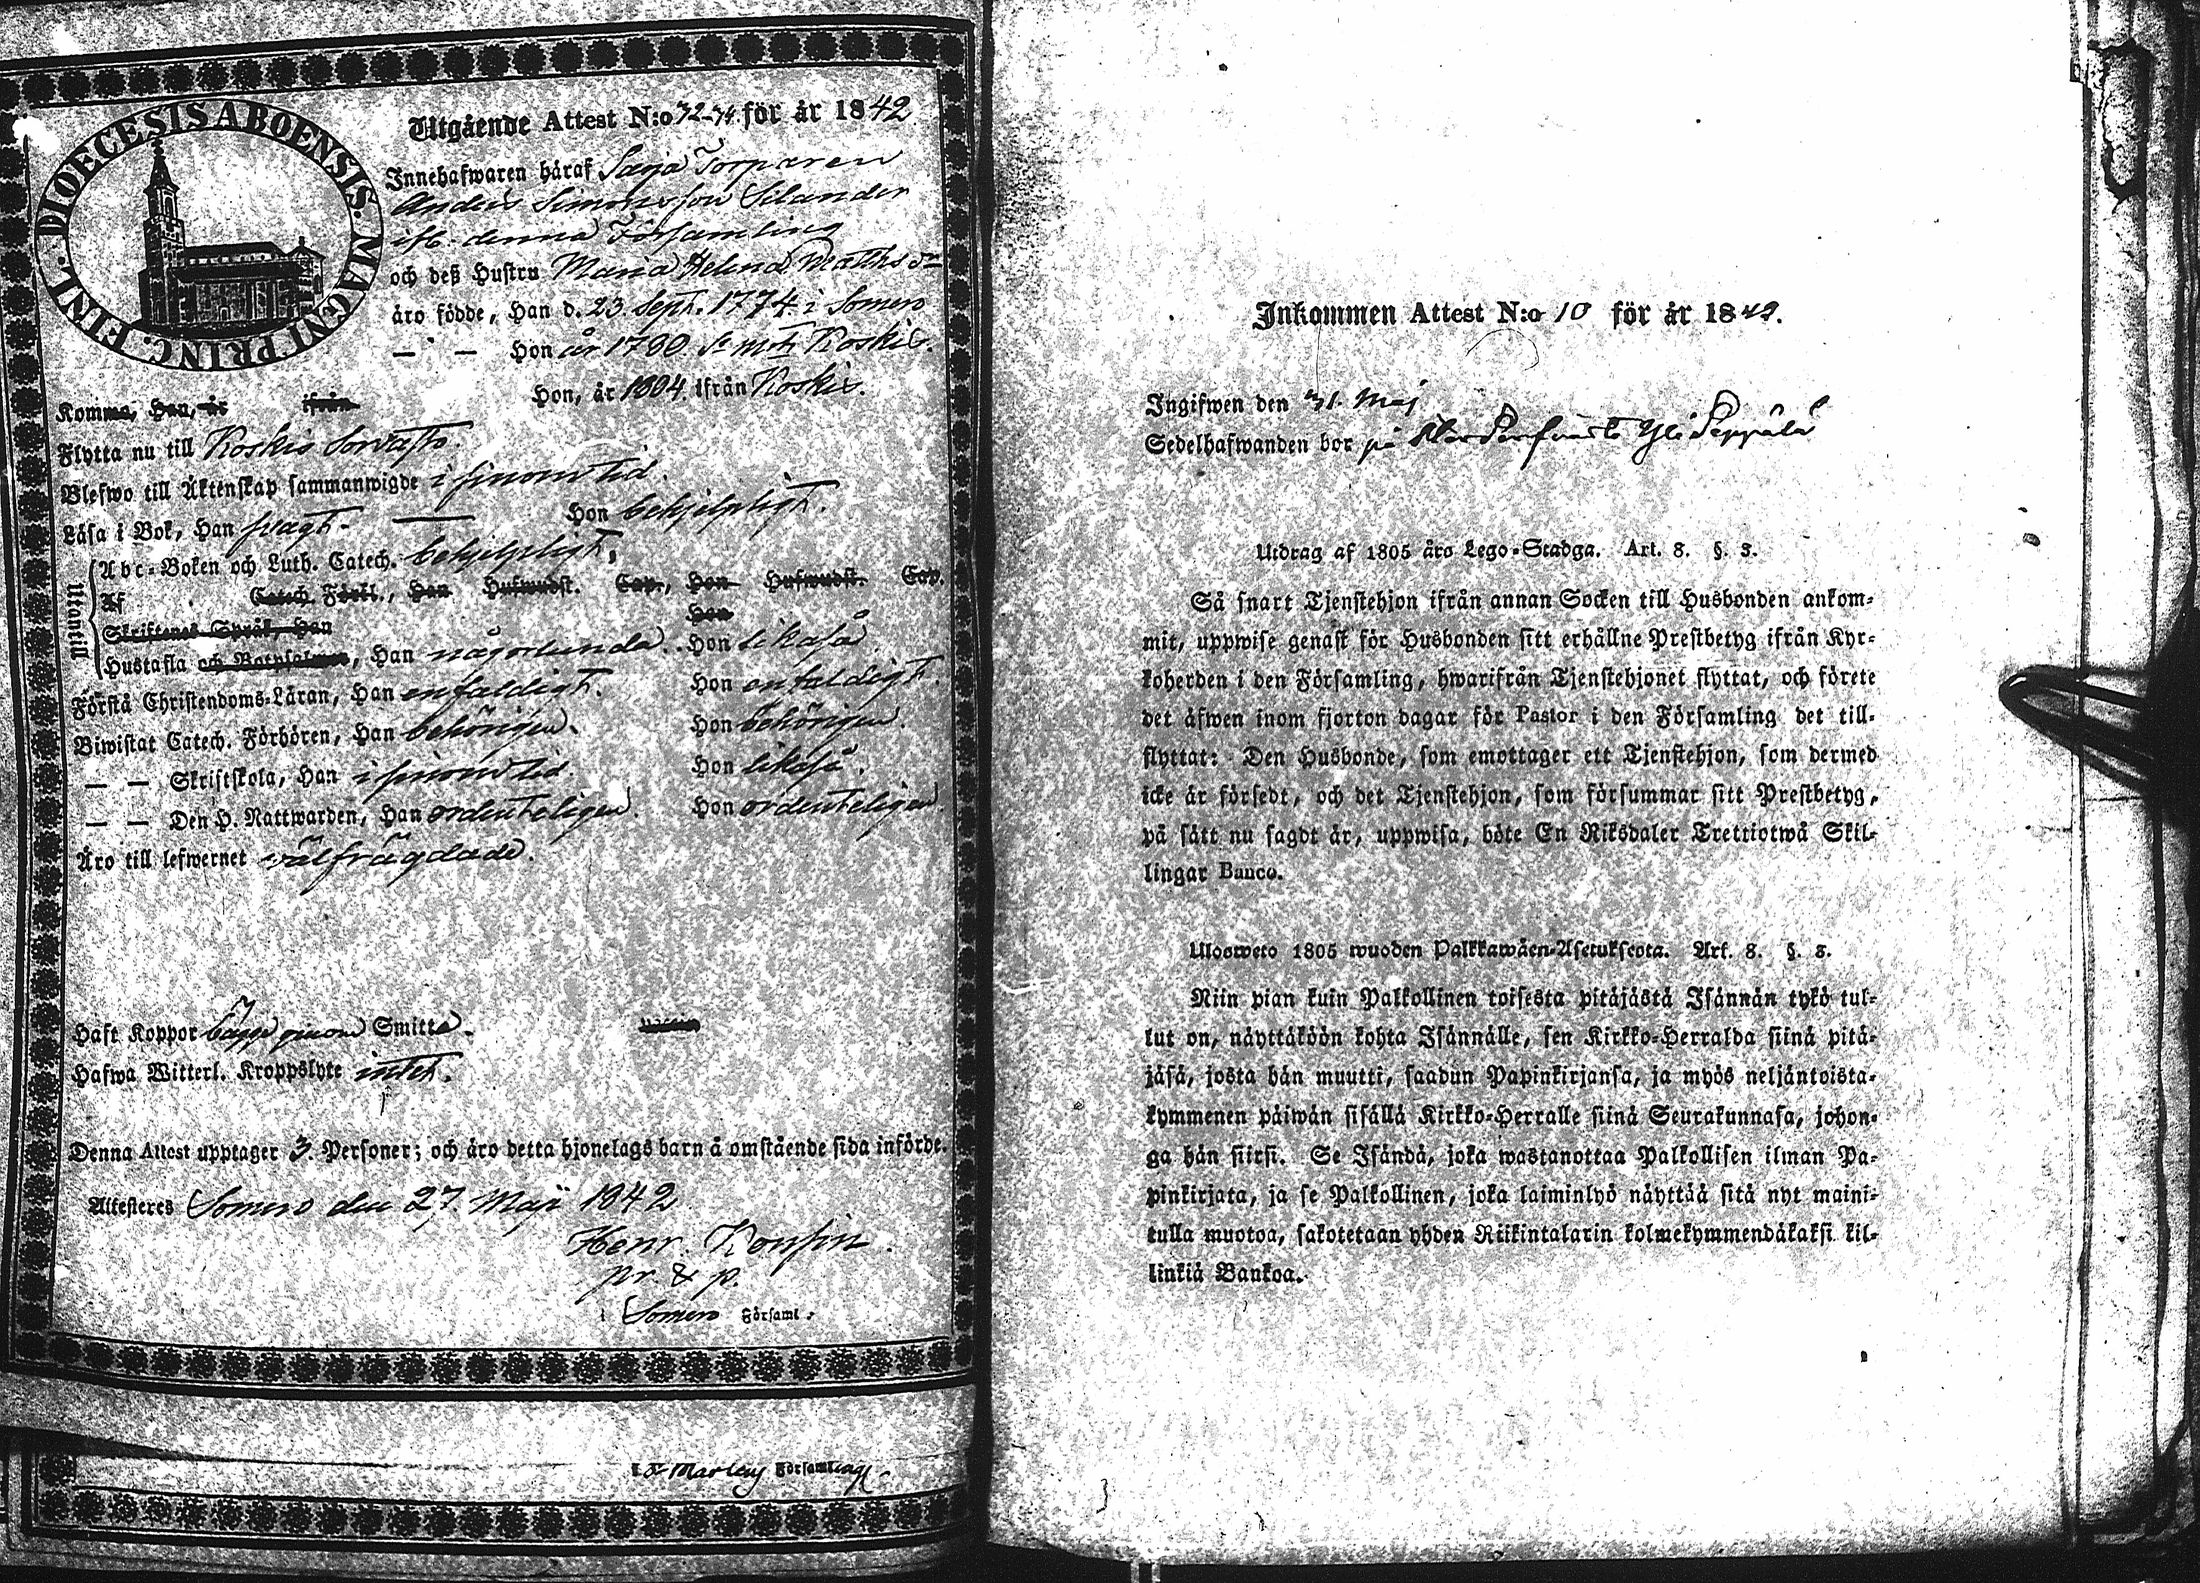 DIOECESIS ABOENSIS. MAGNI PRINC. FINL.
Utgående Attest N:o 72-74 för år 1842
Innehafwaren häraf Torparen
Anders Simonsson Silander
denna Församling
och deß Hustru Maria Helena Matthsdr
äro födde, Han d. 23 Sept. 1774 i Somero
— — Hon år 1780 Koskis.
Komma, Han, år ifrån Hon, år 1804 ifrån Koskis.
Flytta nu till Koskis
Blefwo till Äktenskap sammanwigde i sinom tid.
Läsa i Bok, Han svagt. — Hon behjelpligt.
Utantill
Abc-Boken och Luth. Catech. behjelpligt,
Af Catech. Förkl., Han Hufwudst. Cap., Hon Hufwudst. Cap.
Skriftenes Språk, Han Hon
Hustafla och Botpsalmer, Han någorlunda. Hon likaså.
Förstå Christendoms-Läran, Han enfaldigt. Hon enfaldigt.
Biwistat Catech. Förhören, Han behörigen. Hon behörigen.
— — Skriftskola, Han i sinom tid. Hon likaså.
— — Den H. Nattwarden, Han ordenteligen. Hon ordenteligen
Äro till lefwernet välfrägdade.
Haft Koppor bägge genom Smitta.
Hafwa Witterl. Kroppslyte intet.
Denna Attest upptager 3. Personer; och äro detta hjonelags barn å omstående sida införde.
Attesteres Somero den 27. Maji 1842
Henr.
pr. & p.
i Somero Församl.
Församling
Inkommen Attest N:o 10 för år 1842.
Ingifwen den 31. Maj
Sedelhafwanden bor på Yli Seppälä
Utdrag af 1805 års Lego-Stadga. Art. 8. §. 3.
Så snart Tjenstehjon ifrån annan Socken till Husbonden ankom-
mit, uppwise genast för Husbonden sitt erhållne Prestbetyg ifrån Kyr-
koherden i den Församling, hwarifrån Tjenstehjonet flyttat, och förete
det äfwen inom fjorton dagar för Pastor i den Församling det till-
flyttat: Den Husbonde, som emottager ett Tjenstehjon, som dermed
icke är försedt, och det Tjenstehjon, som försummar sitt Prestbetyg,
på sätt nu sagdt är, uppwisa, böte En Riksdaler Trettiotwå Skil-
lingar Banco.
Ulosweto 1805 wuoden Palkkawäen-Asetuksesta. Art. 8. §. 3.
Niin pian kuin Palkollinen toisesta pitäjästä Isännän tykö tul-
lut on, näyttäköön kohta Isännälle, sen Kirkko-Herralda siinä pitä-
jäsä, josta hän muutti, saadun Papinkirjansa, ja myös neljäntoista-
kymmenen päiwän sisällä Kirkko-Herralle siinä Seurakunnasa, johon-
ga hän siirsi. Se Isändä, joka wastanottaa Palkollisen ilman Pa-
pinkirjata, ja se Palkollinen, joka laiminlyö näyttää sitä nyt maini-
tulla muotoa, sakotetaan yhden Riikintalarin kolmekymmendäkaksi kil-
linkiä Bankoa.